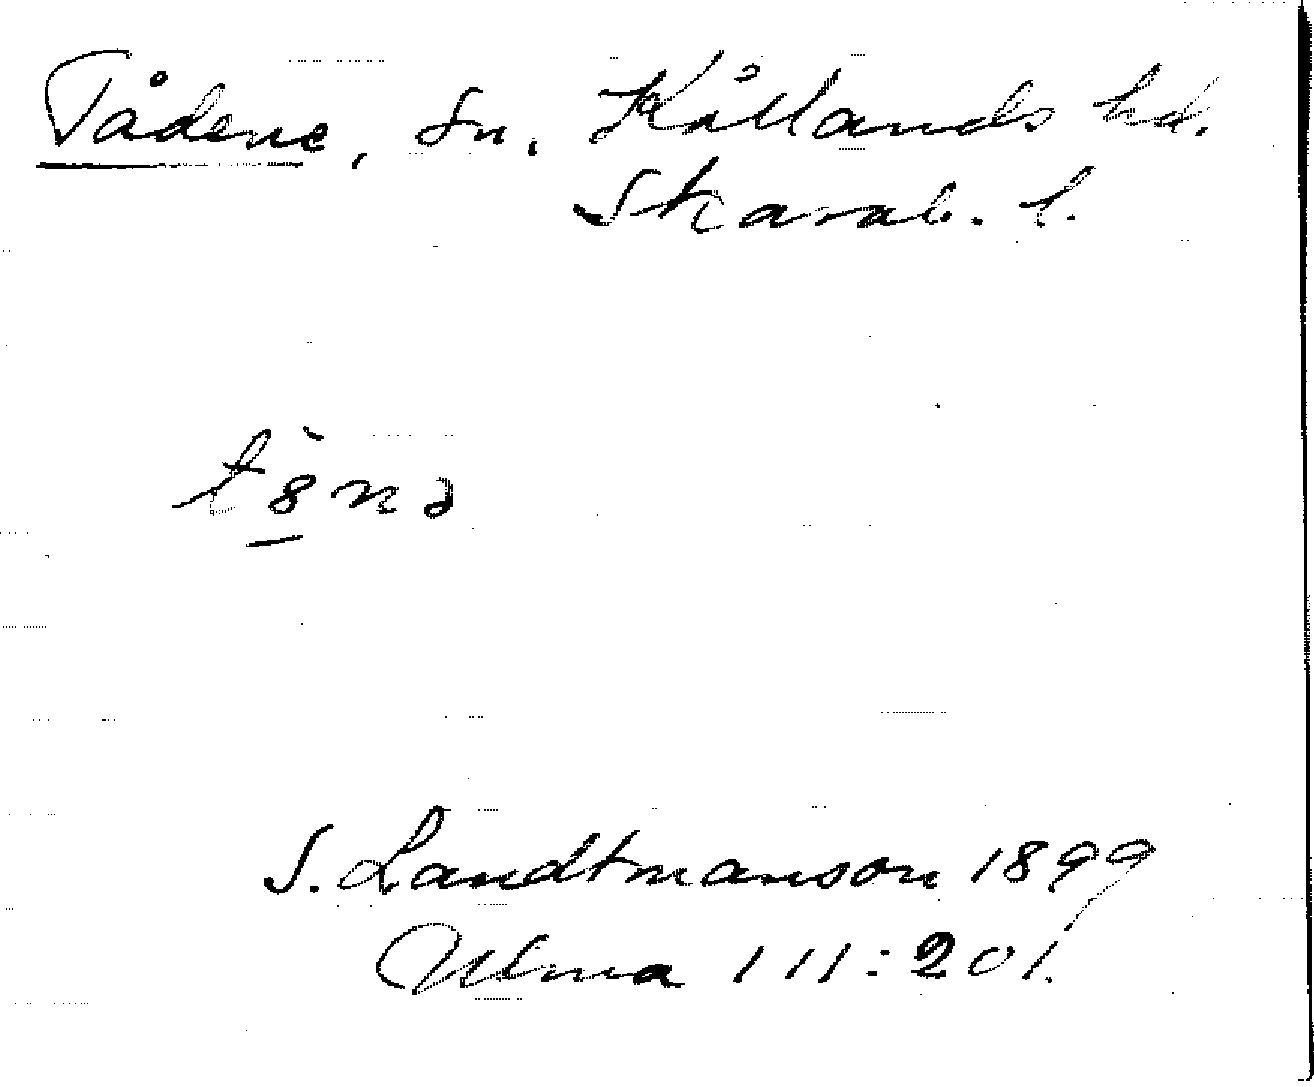 Tådene, sn. Kållands hd.
Skarab. l.
t8̠̀nə
S. Landtmanson 1899
Ulma 111:201.